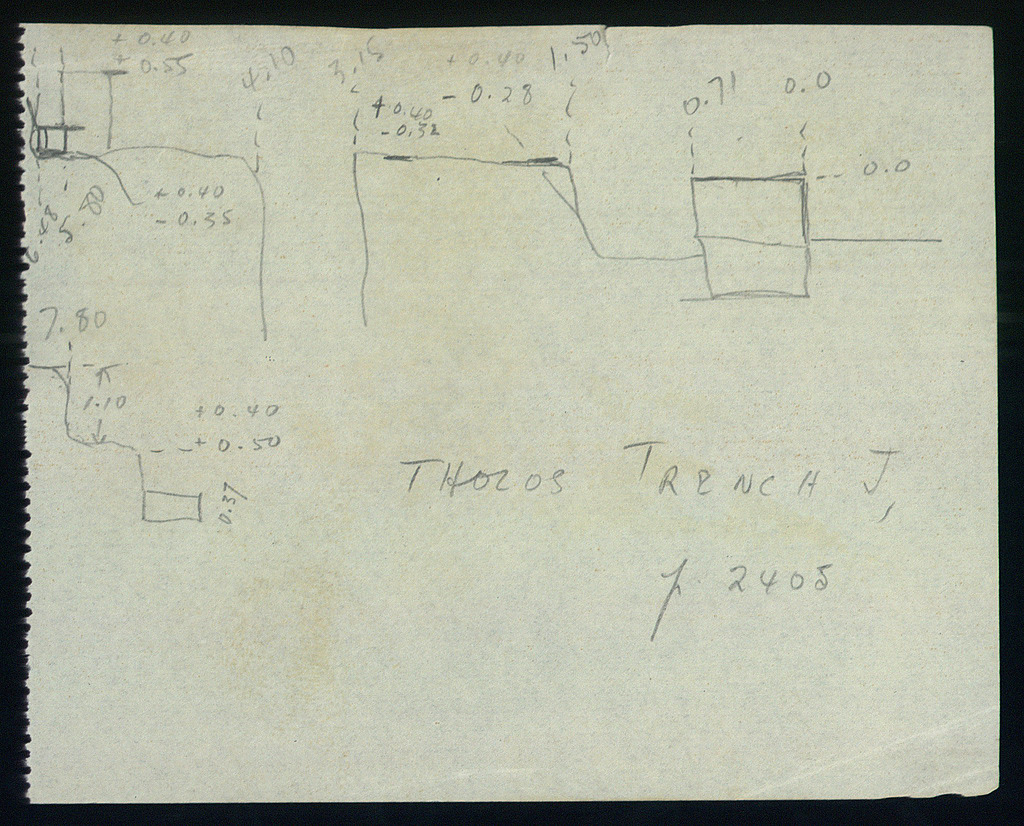 + 0.40
+ 0.55
4.10
3.15
+ 0.40
- 0.28
1.50
+ 0.40
- 0.32
0.71
0.0
0.0
+ 0.40
- 0.35
6.48
5.80
7.80
1.10
+ 0.40
+ 0.50
0.37
THOLOS TRENCH J,
p. 2405